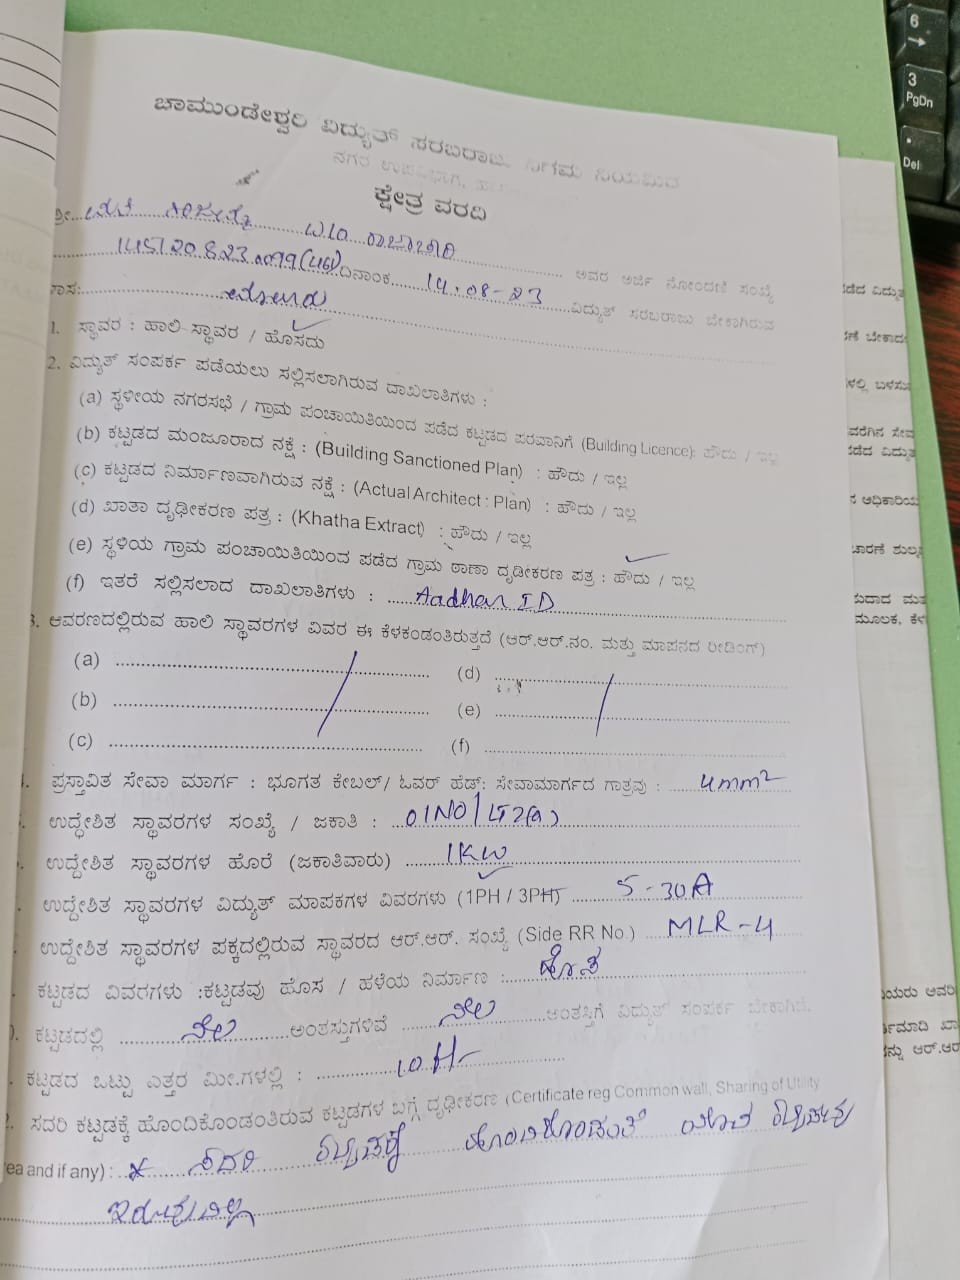 ಚಾಮುಂಡೇಶ್ವರಿ ವಿದ್ಯುತ್ ಸರಬರಾಜು ನಿಗಮ ನಿಯಮಿತ
ನಗರ ಉಪವಿಭಾಗ,
ಕ್ಷೇತ್ರ ವರದಿ
ಶ್ರೀ... ... ಅವರ ಅರ್ಜಿ ನೋಂದಣಿ ಸಂಖ್ಯೆ
ದಿನಾಂಕ 14.08-23 ವಿದ್ಯುತ್ ಸರಬರಾಜು ಬೇಕಾಗಿರುವ
1. ಸ್ಥಾವರ : ಹಾಲಿ ಸ್ಥಾವರ / ಹೊಸದು
2. ವಿದ್ಯುತ್ ಸಂಪರ್ಕ ಪಡೆಯಲು ಸಲ್ಲಿಸಲಾಗಿರುವ ದಾಖಲಾತಿಗಳು :
(a) ಸ್ಥಳೀಯ ನಗರಸಭೆ / ಗ್ರಾಮ ಪಂಚಾಯಿತಿಯಿಂದ ಪಡೆದ ಕಟ್ಟಡದ ಪರವಾನಿಗೆ (Building Licence): ಹೌದು / ಇಲ್ಲ
(b) ಕಟ್ಟಡದ ಮಂಜೂರಾದ ನಕ್ಷೆ : (Building Sanctioned Plan) : ಹೌದು / ಇಲ್ಲ
(c) ಕಟ್ಟಡದ ನಿರ್ಮಾಣವಾಗಿರುವ ನಕ್ಷೆ : (Actual Architect : Plan) : ಹೌದು / ಇಲ್ಲ
(d) ಖಾತಾ ದೃಢೀಕರಣ ಪತ್ರ : (Khatha Extract) : ಹೌದು / ಇಲ್ಲ
(e) ಸ್ಥಳಿಯ ಗ್ರಾಮ ಪಂಚಾಯಿತಿಯಿಂದ ಪಡೆದ ಗ್ರಾಮ ಠಾಣಾ ದೃಡೀಕರಣ ಪತ್ರ : ಹೌದು / ಇಲ್ಲ
(f) ಇತರೆ ಸಲ್ಲಿಸಲಾದ ದಾಖಲಾತಿಗಳು : Aadhar ID
3. ಆವರಣದಲ್ಲಿರುವ ಹಾಲಿ ಸ್ಥಾವರಗಳ ವಿವರ ಈ ಕೆಳಕಂಡಂತಿರುತ್ತದೆ (ಆರ್.ಆರ್.ನಂ. ಮತ್ತು ಮಾಪನದ ರೀಡಿಂಗ್)
(a) (d)
(b) (e)
(c) (f)
ಪ್ರಸ್ತಾವಿತ ಸೇವಾ ಮಾರ್ಗ : ಭೂಗತ ಕೇಬಲ್/ ಓವರ್ ಹೆಡ್: ಸೇವಾಮಾರ್ಗದ ಗಾತ್ರವು : 4mm²
ಉದ್ದೇಶಿತ ಸ್ಥಾವರಗಳ ಸಂಖ್ಯೆ / ಜಕಾತಿ : 01NO/LT2(a)
ಉದ್ದೇಶಿತ ಸ್ಥಾವರಗಳ ಹೊರೆ (ಜಕಾತಿವಾರು) 1KW
ಉದ್ದೇಶಿತ ಸ್ಥಾವರಗಳ ವಿದ್ಯುತ್ ಮಾಪಕಗಳ ವಿವರಗಳು (1PH / 3PH) 5-30A
ಉದ್ದೇಶಿತ ಸ್ಥಾವರಗಳ ಪಕ್ಕದಲ್ಲಿರುವ ಸ್ಥಾವರದ ಆರ್.ಆರ್. ಸಂಖ್ಯೆ (Side RR No.) MLR-4
ಕಟ್ಟಡದ ವಿವರಗಳು :ಕಟ್ಟಡವು ಹೊಸ / ಹಳೆಯ ನಿರ್ಮಾಣ : ಹೊಸ
ಕಟ್ಟಡದಲ್ಲಿ ನೆಲ ಅಂತಸ್ತುಗಳಿವೆ ನೆಲ ಅಂತಸ್ತಿಗೆ ವಿದ್ಯುತ್ ಸಂಪರ್ಕ ಬೇಕಾಗಿದೆ.
ಕಟ್ಟಡದ ಒಟ್ಟು ಎತ್ತರ ಮೀ.ಗಳಲ್ಲಿ : 10ft
ಸದರಿ ಕಟ್ಟಡಕ್ಕೆ ಹೊಂದಿಕೊಂಡಂತಿರುವ ಕಟ್ಟಡಗಳ ಬಗ್ಗೆ ದೃಢೀಕರಣ (Certificate reg Common wall, Sharing of Utility
ea and if any) : ಸದರಿ ಕಟ್ಟಡಕ್ಕೆ ಹೊಂದಿಕೊಂಡಂತೆ ಯಾವ ಕಟ್ಟಡವು
ಇರುವುದಿಲ್ಲ